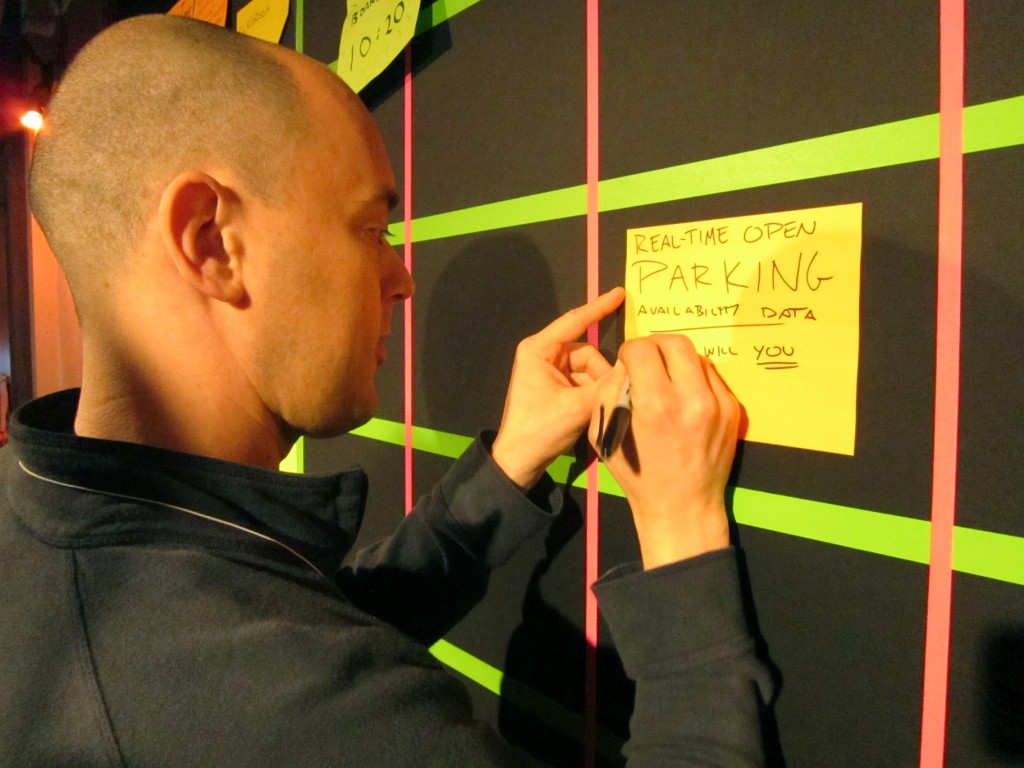 BOAR
10:20
REAL-TIME OPEN
PARKING
AVAILABILITY DATA
WILL YOU